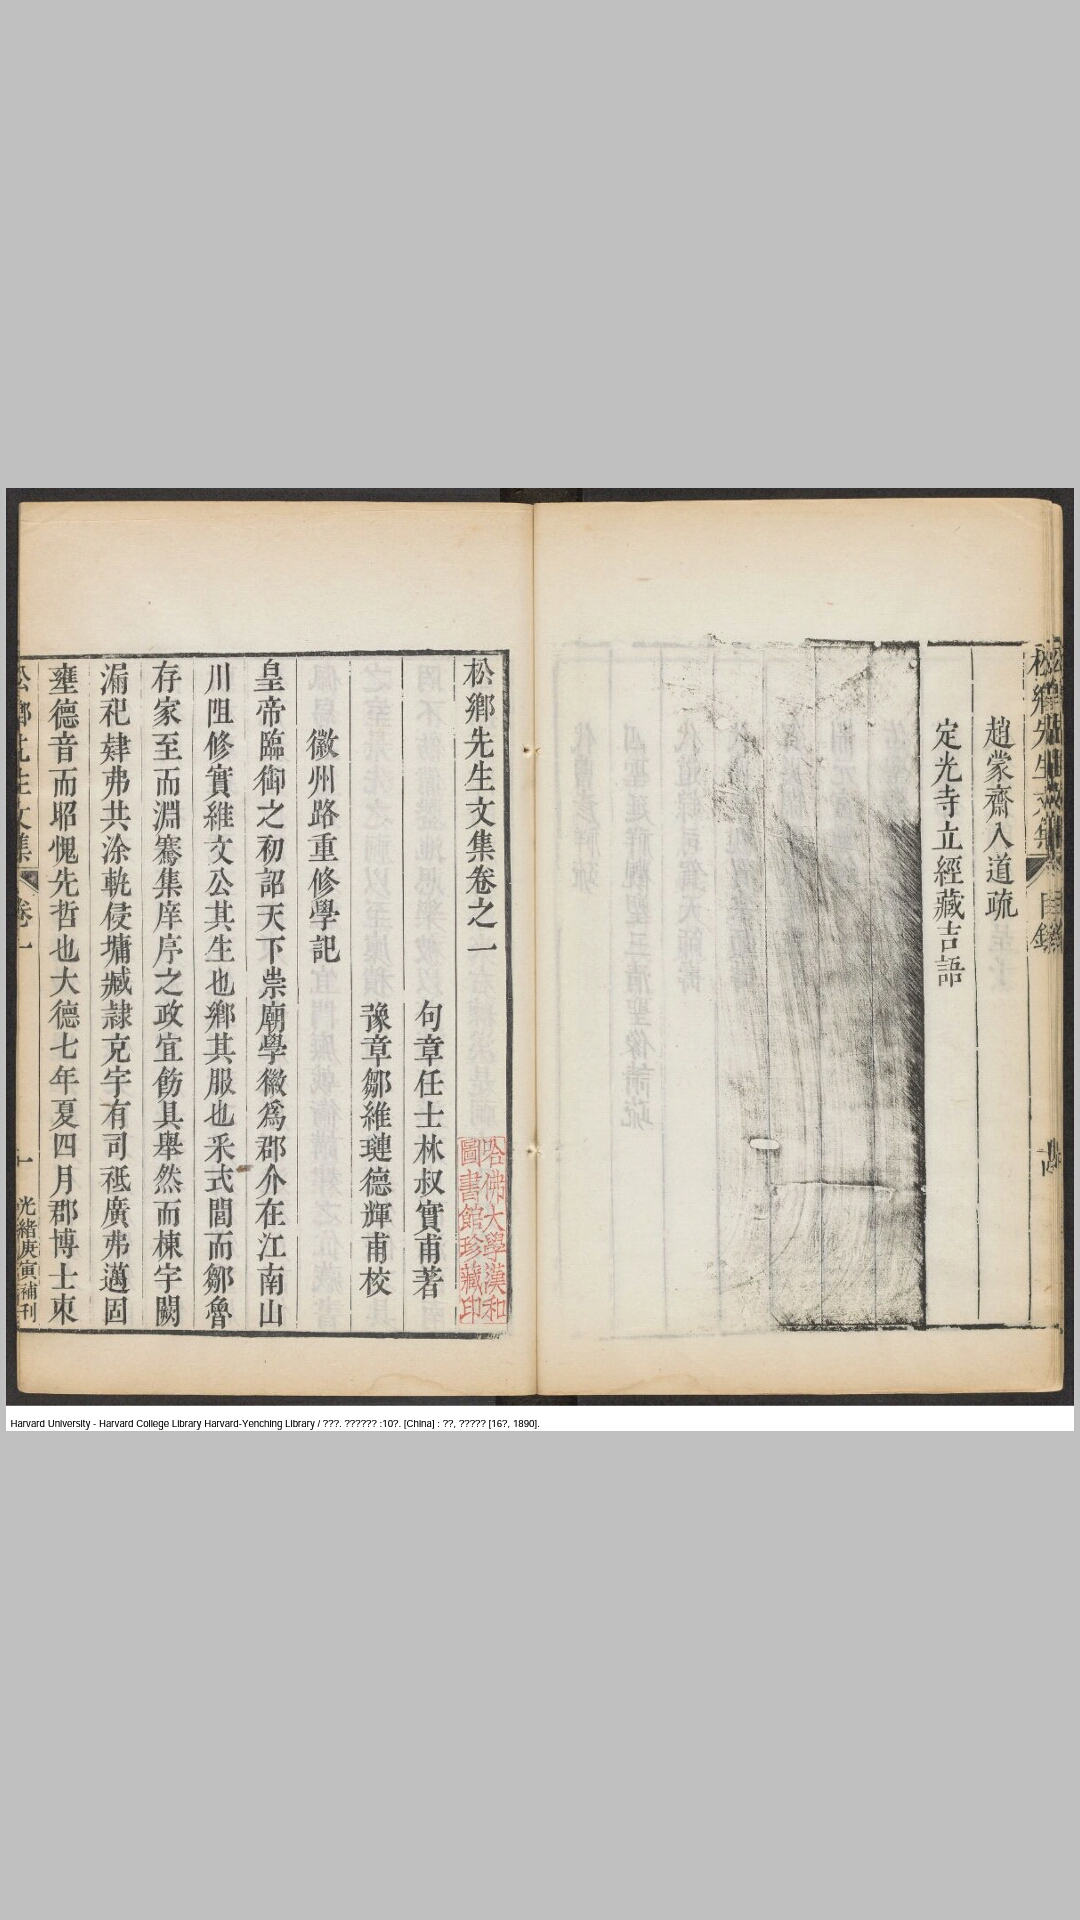 松鄉先生文集
目錄
趙蒙齋入道疏
定光寺立經藏吉語
松鄉先生文集卷之一
句章任士林叔實甫著
豫章鄒維璉德輝甫校
徽州路重修學記
皇帝臨御之初詔天下崇廟學徽爲郡介在江南山
川阻修實維文公其生也鄉其服也釆式閭而鄒魯
存家至而淵騫集庠序之政宜飭具舉然而棟宇闕
漏祀肂弗共涂軦侵墉臧隷克宇有司祗廣弗邁固
壅德音而昭愧先哲也大德七年夏四月郡博士東
松鄉先生文集
卷一
一
光緒庚寅補刊
哈佛大學漢和
圖書館珍藏印
Harvard University - Harvard College Library Harvard-Yenching Library / ???. ?????? :10?. [China] : ??, ????? [16?, 1890].